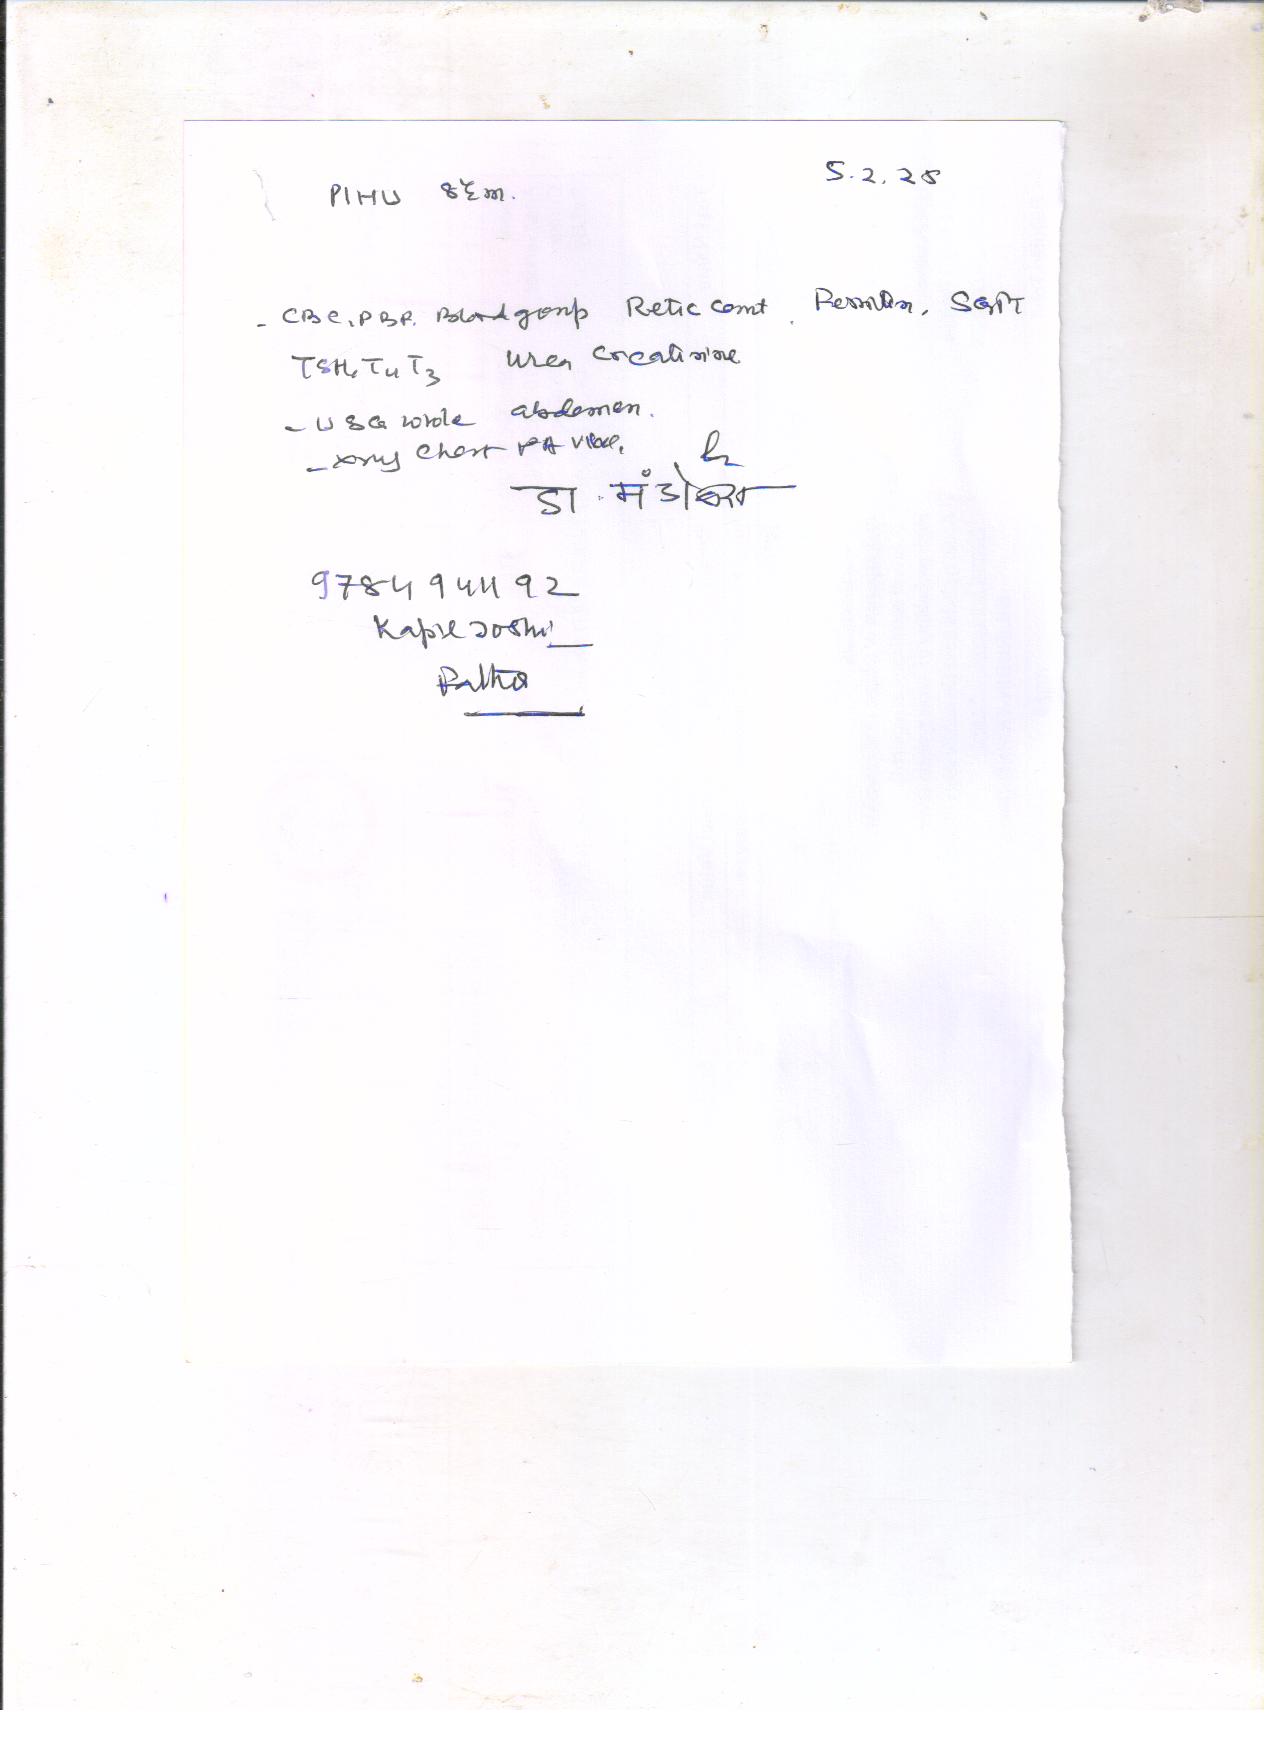 PIHU
5.2.25
- CBC, PBF. Blood group Retic count, Ferritin, SGPT
TSH, T4 T3 Urea Creatinine
- USG whole abdomen.
- xray Chest PA view,
डा. मंडोवरा
9784941192
Kapil Joshi